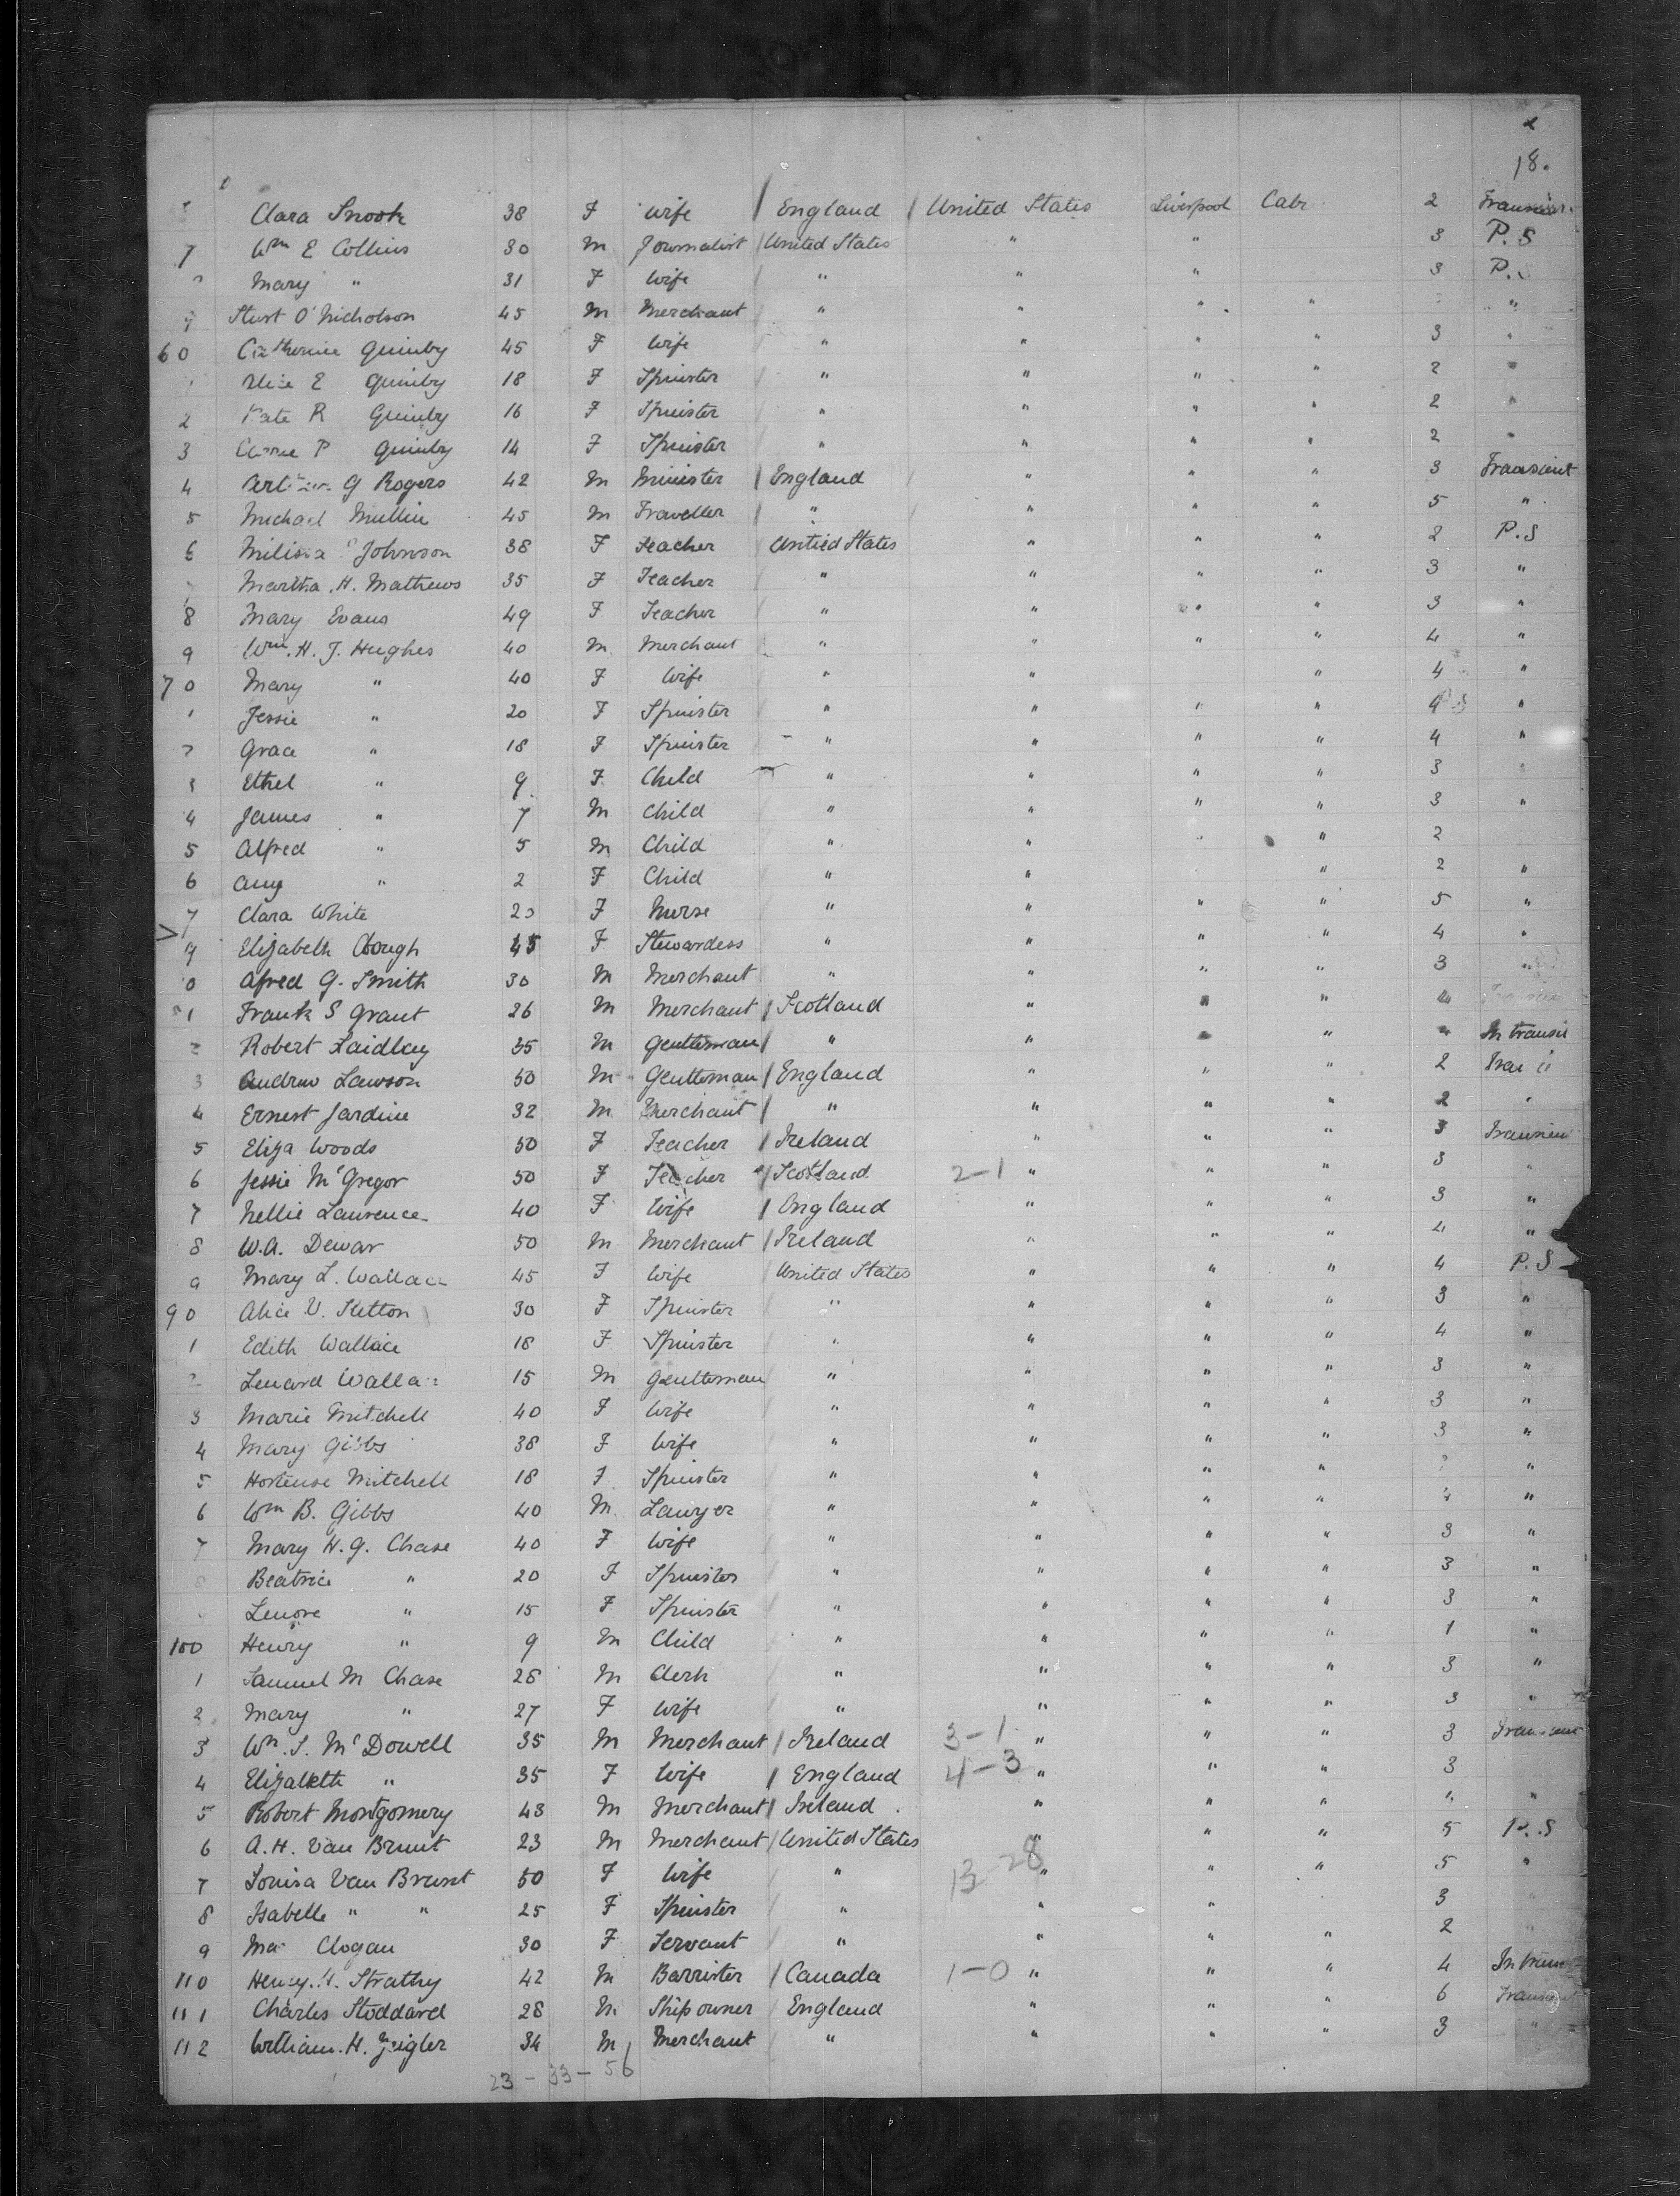 2
18.
Clara Snook 38 F Wife / England / United States Liverpool Cabi 2 Transient
7 Wm E Collins 30 M Journalist / United States " " 3 P.S
Mary " 31 F Wife / " " " 3 P.S
O'Nicholson 45 M Merchant " " " " "
60 Catherine Quinby 45 F Wife " " " " 3 "
Alice E Quinby 18 F Spinster " " " " 2 "
2 Kate R Quinby 16 F Spinster " " " " 2 "
3 P Quinby 14 F Spinster " " " " 2 "
4 G Rogers 42 M Minister / England " " " 3 Transient
5 Michael Mullin 45 M Traveller / " " " " 5 "
6 Johnson 38 F Teacher Untied States " " " 2 P.S
Martha . H. Mathews 35 F Teacher " " " " 3 "
8 Mary Evans 49 F Teacher " " " " 3 "
9 Wm. H. J. Hughes 40 M Merchant " " " " 4 "
70 Mary " 40 F Wife " " " 4 "
1 Jessie " 20 F Spinster " " " " 4 "
2 Grace " 18 F Spinster " " " " 4 "
3 Ethel " 9 F Child " " " " 3 "
4 James " 7 M Child " " " " 3 "
5 Alfred " 5 M Child " " " " 2
6 Amy " 2 F Child " " " 2 "
7 Clara White 20 F Nurse " " " " 5 "
9 Elizabeth Clough 45 F Stewardess " " " " 4 "
0 Afred G. Smith 30 M Merchant " " " " 3 "
81 Frank S Grant 26 M Merchant / Scotland " " "
2 Robert Laidlay 35 M Gentleman / " " " " " In transit
3 Andrew Lawson 50 M Gentleman / England " " " 2
4 Ernest Jardine 32 M Merchant / " " " " 2 "
5 Eliza Woods 50 F Teacher / Ireland " " " 3 Transient
6 Jessie McGregor 50 F Teacher / Scotland 2-1 " " " 3 "
7 Nellie Lawrence 40 F Wife / England " " " 3 "
8 W.A. Dewar 50 M Merchant / Ireland " " " 4 "
9 Mary L. Wallace 45 F Wife / United States " " " 4 P.S
90 Alice V. Ketton 30 F Spinster " " " " 3 "
1 Edith Wallace 18 F Spinster " " " " 4 "
2 Lenard Wallace 15 M Gentleman " " " " 3 "
3 Marie Mitchell 40 F Wife " " " " 3 "
4 Mary Gibbs 38 F Wife " " " " 3 "
5 Hortense Mitchell 18 F Spinster " " " " "
6 Wm B. Gibbs 40 M Lawyer " " " " "
7 Mary H. G. Chase 40 F Wife " " " " 3 "
8 Beatrice " 20 F Spinster " " " " 3 "
Lenore " 15 F Spinster " " " " 3 "
100 Henry " 9 M Child " " " " 1 "
1 Samuel M Chase 28 M Clerk " " " " 3 "
2 Mary " 27 F Wife " " " " 3 "
3 Wm. S. McDowell 35 M Merchant / Ireland 3-1 " " " 3 Transient
4 Elizabeth " 35 F Wife / England 4-3 " " " 3
5 Robert Montgomery 43 M Merchant / Ireland " " " "
6 A. H. Van Brunt 23 M Merchant / United States " " " 5 P.S
7 Louisa Van Brunt 50 F Wife " 13-28 " " " 5 "
8 Isabelle " " 25 F Spinster " " " 3 "
9 Clogan 30 F Servant " " " " 2 "
110 Henry. H. Strathy 42 M Barrister / Canada 1-0 " " " 4
111 Charles Stoddard 28 M Ship owner / England " " " 6 Transient
112 William. H. Zeigler 34 M Merchant " " " " 3 "
23-33-56